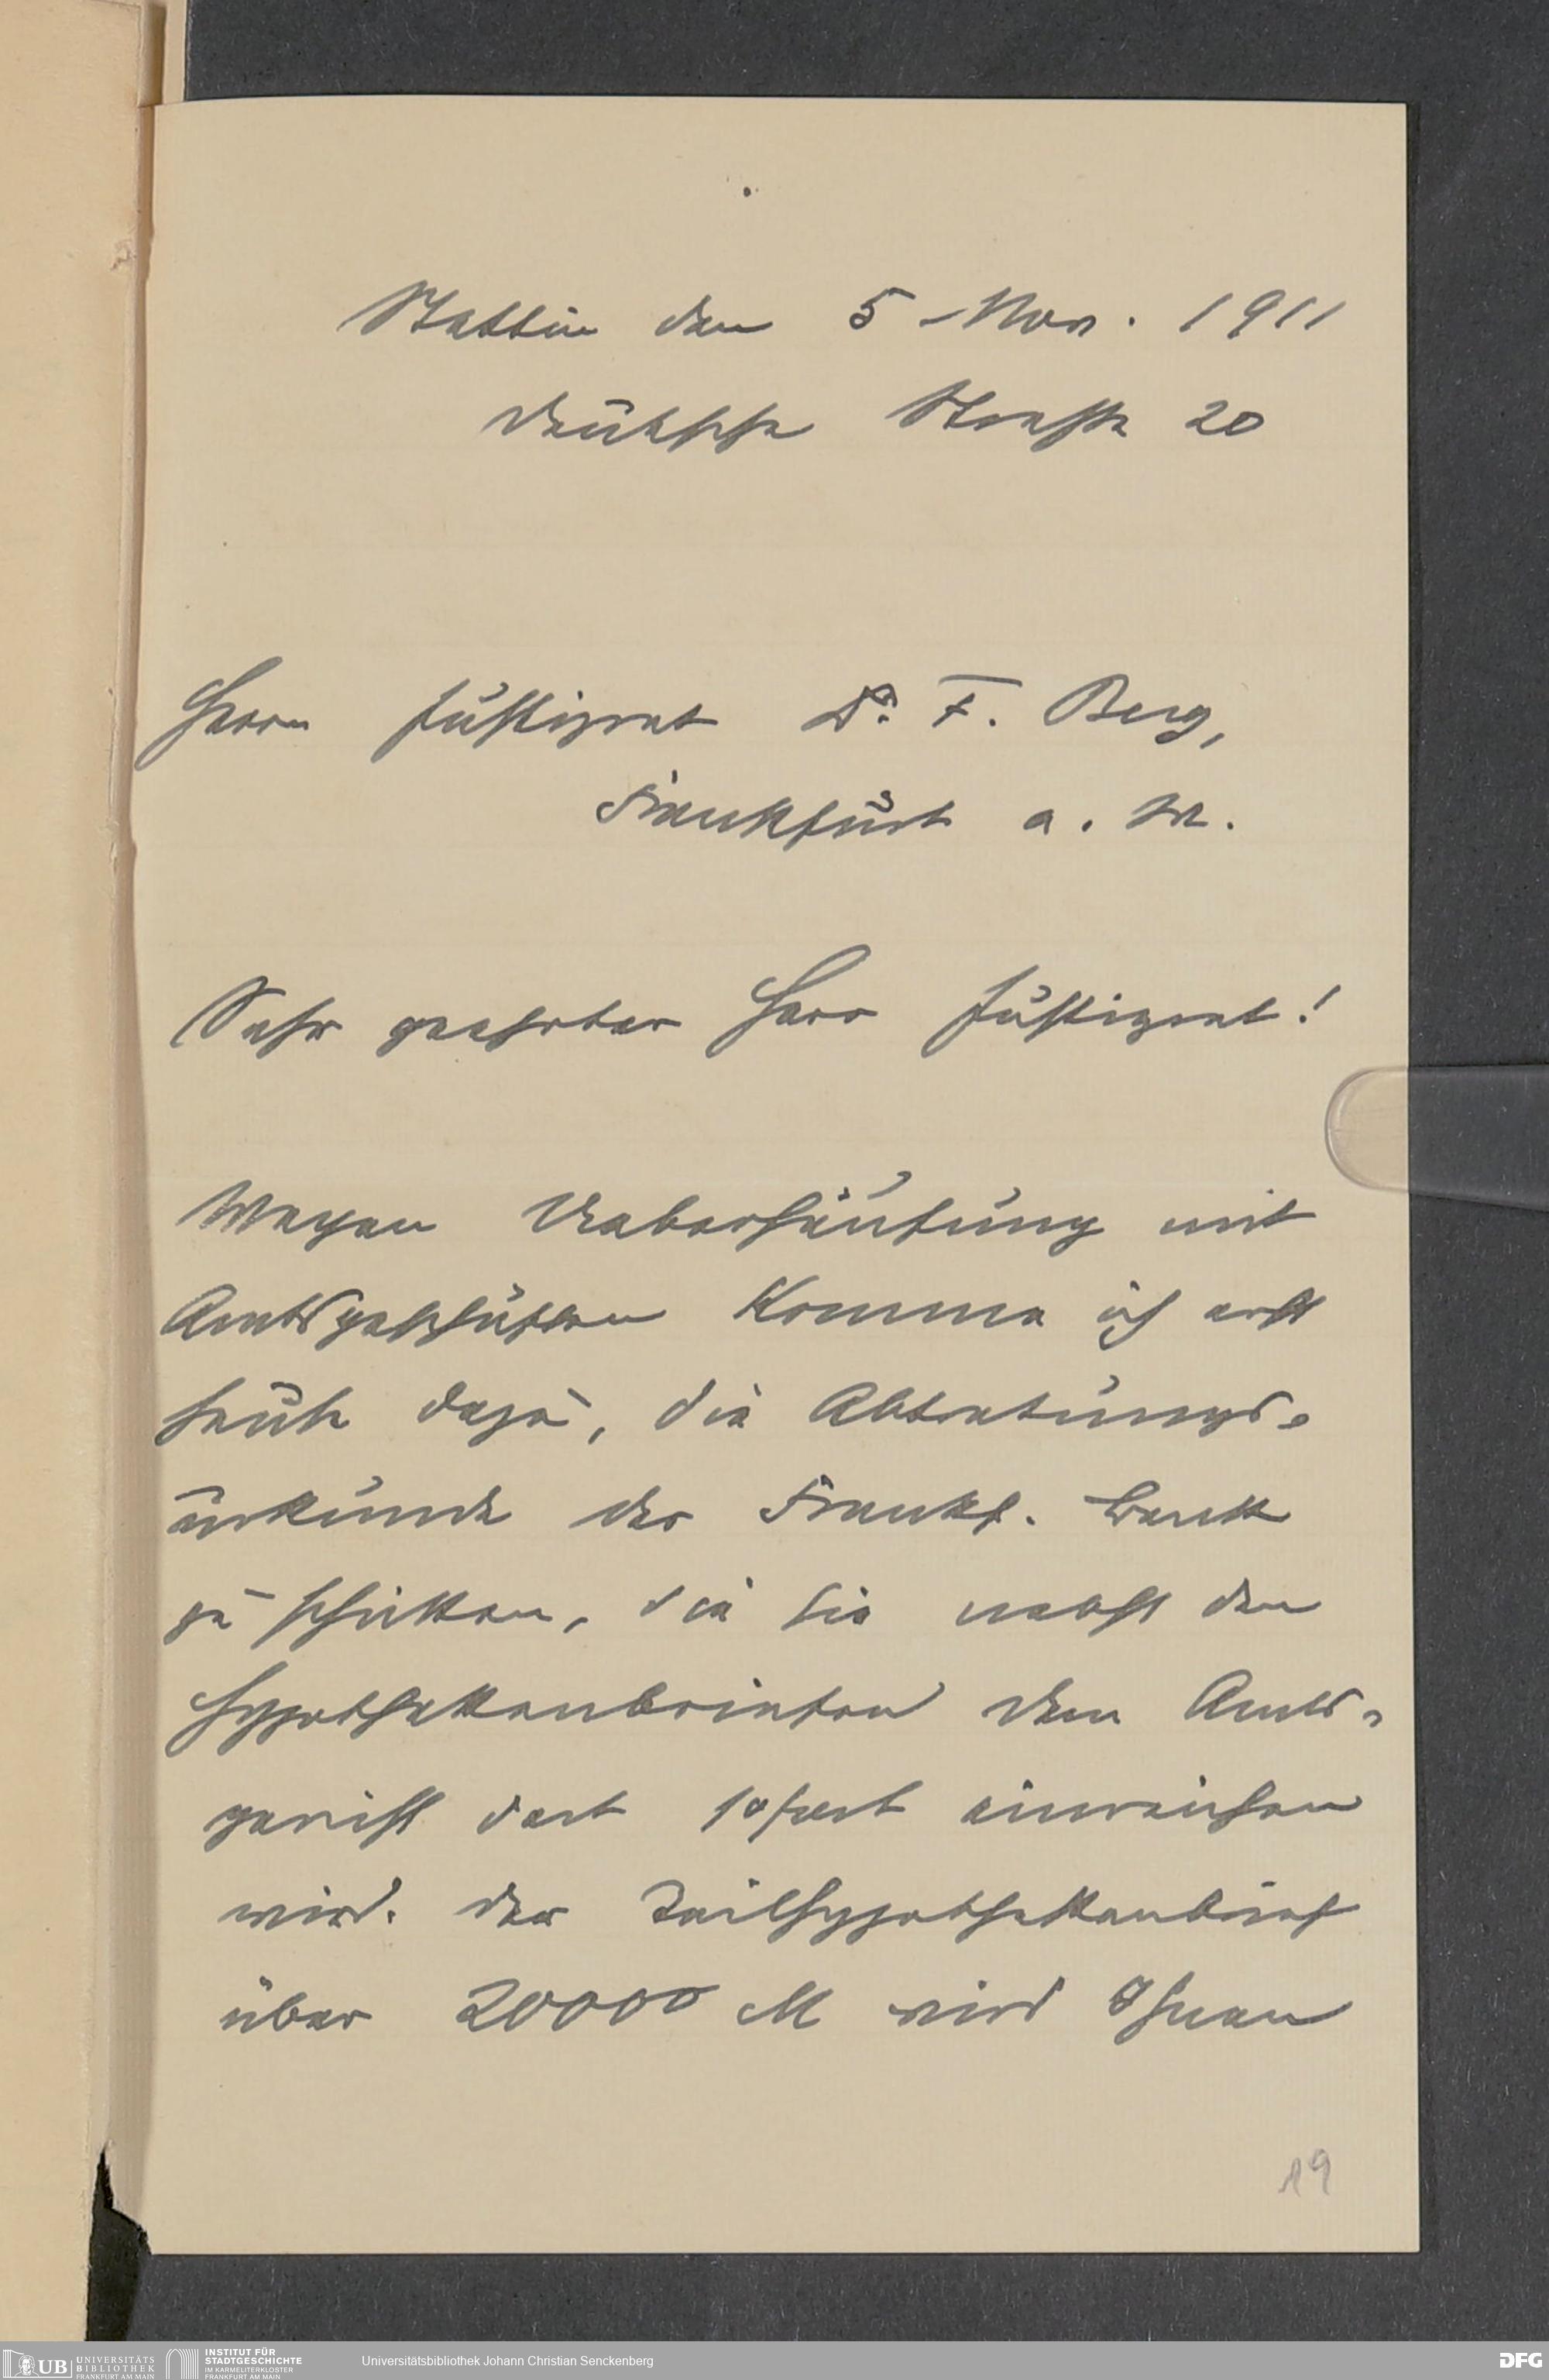 Stettin den 5 Nov. 1911
Deutsche Strasse 20
Herrn Justizrat Dr. F. Berg,
Frankfurt a. M.
Sehr geehrter Herr Justizrat!
Wegen Ueberhäufung mit
Amtsgeschäften komme ich erst
heute dazu, die Abtretungs-
urkunde der Frankf. Bank
zu schicken, die sie nebst den
Hypothekenbriefen dem Amts-
gericht dort sofort einreichen
wird. Der Teilhypothekenbrief
über 20000 M wird Ihnen
19
UB UNIVERSITÄTS
BIBLIOTHEK
FRANKFURT AM MAIN
INSTITUT FÜR
STADTGESCHICHTE
IM KARMELITERKLOSTER
FRANKFURT AM MAIN
Universitätsbibliothek Johann Christian Senckenberg
DFG